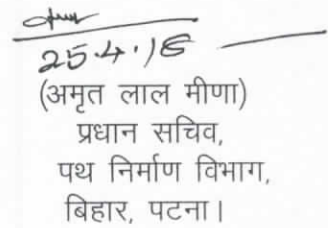 25.4.18
(अमृत लाल मीणा)
प्रधान सचिव,
पथ निर्माण विभाग,
बिहार, पटना।